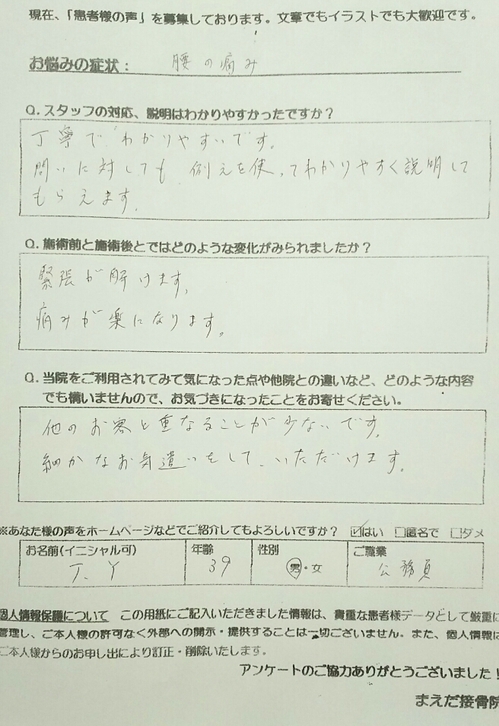 現在、「患者様の声」を募集しております。文章でもイラストでも大歓迎です。
お悩みの症状： 腰の痛み
Q. スタッフの対応、説明はわかりやすかったですか？
丁寧でわかりやすいです。
問いに対しても 例えを使ってわかりやすく説明して
もらえます。
Q. 施術前と施術後とではどのような変化がみられましたか？
緊張が解けます。
痛みが楽になります。
Q. 当院をご利用されてみて気になった点や他院との違いなど、どのような内容
でも構いませんので、お気づきになったことをお寄せください。
他のお客と重なることが少ないです。
細かなお気遣いをして、いただけます。
※あなた様の声をホームページなどでご紹介してもよろしいですか？ ☑はい □匿名で □ダメ
お名前(イニシャル可) 年齢 性別 ご職業
T. Y 39 男・女 公務員
個人情報保護について この用紙にご記入いただきました情報は、貴重な患者様データとして厳重に
管理し、ご本人様の許可なく外部への開示・提供することは一切ございません。また、個人情報は
ご本人様からのお申し出により訂正・削除いたします。
アンケートのご協力ありがとうございました！
まえだ接骨院